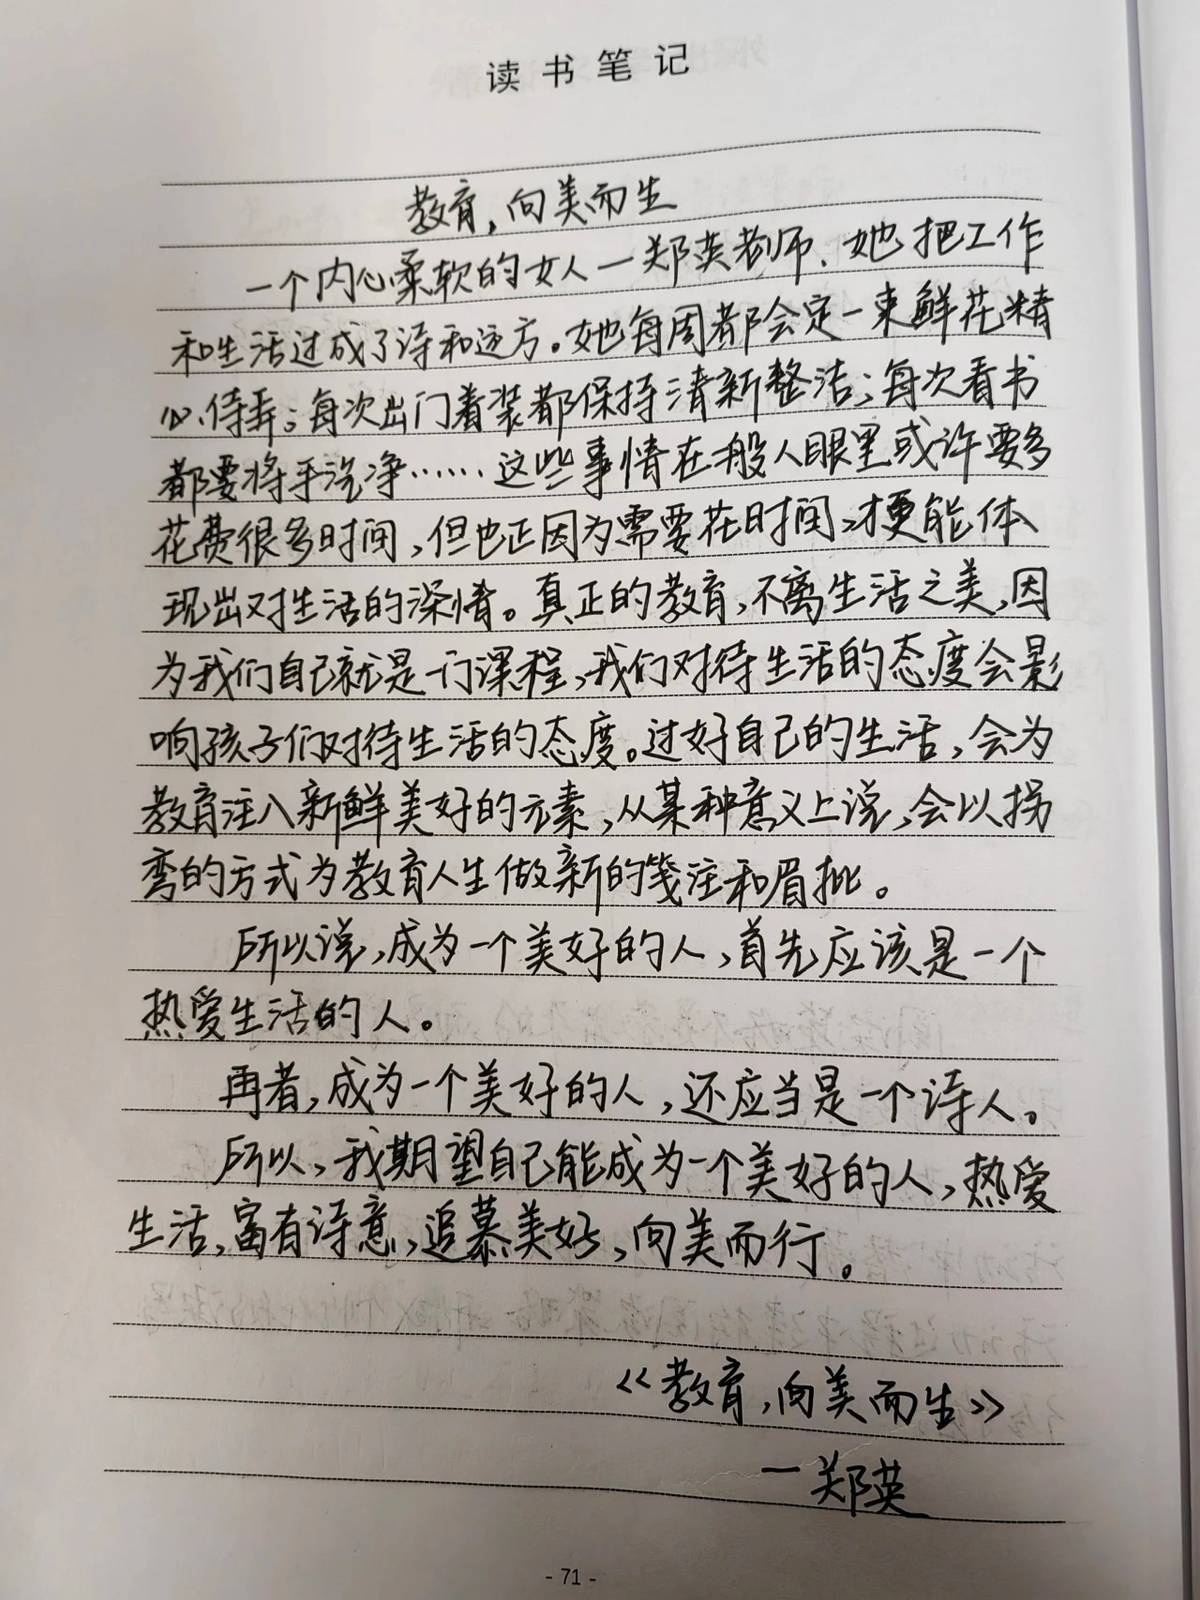 读书笔记
教育，向美而生
一个内心柔软的女人—郑英老师．她把工作
和生活过成了诗和远方。她每周都会定一束鲜花精
心侍弄；每次出门着装都保持清新整洁；每次看书
都要将手洗净……这些事情在一般人眼里或许要多
花费很多时间，但也正因为需要花时间，才更能体
现出对生活的深情。真正的教育，不离生活之美，因
为我们自己就是一门课程，我们对待生活的态度会影
响孩子们对待生活的态度。过好自己的生活，会为
教育注入新鲜美好的元素，从某种意义上说，会以拐
弯的方式为教育人生做新的笺注和眉批。
所以说，成为一个美好的人，首先应该是一个
热爱生活的人。
再者，成为一个美好的人，还应当是一个诗人。
所以，我期望自己能成为一个美好的人，热爱
生活，富有诗意，追慕美好，向美而行。
《教育，向美而生》
—郑英
- 71 -